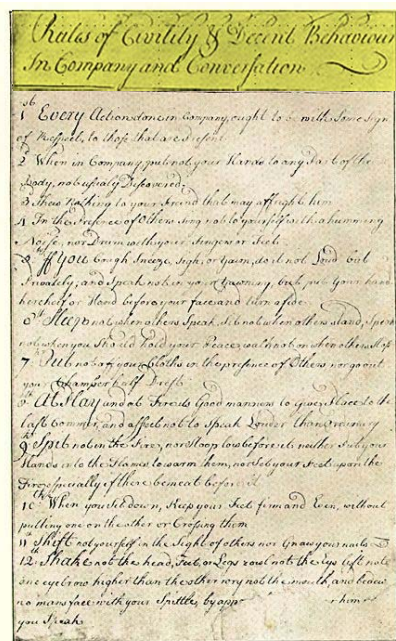 Rules of Civility & Decent Behaviour
In Company and Conversation
1 Every Action done in Company, ought to be with Some Sign
of Respect, to those that are Present
2 When in Company, put not your Hands to any Part of the
Body, not usualy Discovered
3 Shew Nothing to your Freind that may affright him
4 In the Presence of Others sing not to yourself with a humming
Noise, nor Drum with your Fingers or Feet
5 If You Cough, Sneeze, Sigh, or Yawn, do it not Loud but
Privately; and Speak not in your Yawning, but put Your hand
kercheif or Hand before your face and turn aside
6 Sleep not when others Speak, Sit not when others stand, Speak
not when you Should hold your Peace, walk not on when others Stop
7 Put not off your Cloths in the presence of Others, nor go out
your Chamber half Drest
8 At Play and at Fire its Good manners to Give Place to the
last Commer, and affect not to Speak Louder than ordinary
9 Spit not in the Fire, nor Stoop low before it neither Put your
Hands into the Flames to warm them, nor Set your Feet upon the
Fire especially if there be meat before it
10 When you Sit down, Keep your Feet firm and Even, without
putting one on the other or Crossing them
11 Shift not yourself in the Sight of others nor Gnaw your nails
12 Shake not the head, Feet, or Legs rowl not the Eys lift not
one eyebrow higher than the other wry not the mouth, and bedew
no mans face with your Spittle, by app him
you Speak